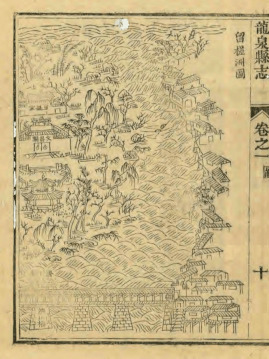 龍泉縣志
卷之一
圖
十
留槎洲圖